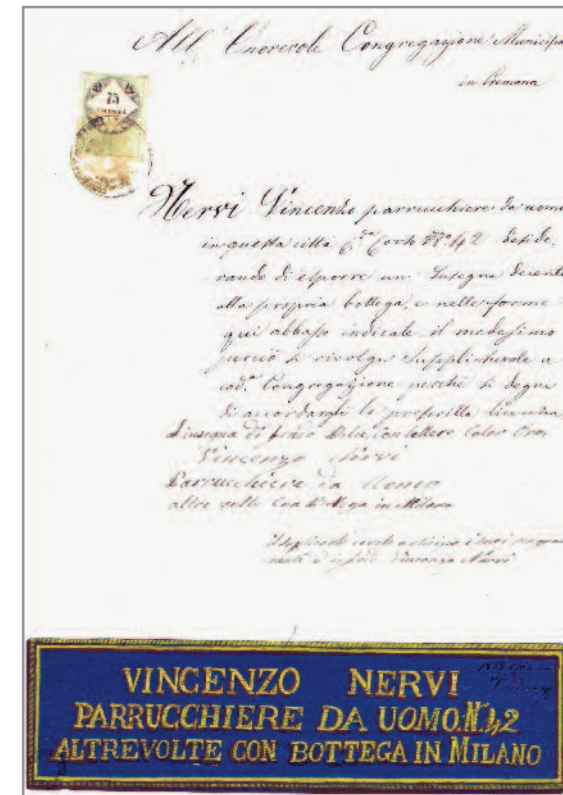 All' Onorevole Congregazione Municipa
in Cremona
75
Nervi Vincenzo parrucchiere da uomo
in questa città C.so Corso N° 42 deside
rando di esporre un Insegna decente
alla propria bottega, e nelle forme
qui abbasso indicate il medesimo
perciò si rivolge supplichevole a
cod.a Congregazione perché si degni
di accordargli la prescritta licenza
L'insegna di fondo Bleu, con lettere Color Oro,
Vincenzo Nervi
Parrucchiere da Uomo
altre volte Con Bottega in Milano
Vincenzo Nervi
VINCENZO NERVI
PARRUCCHIERE DA UOMO.N.42
ALTREVOLTE CON BOTTEGA IN MILANO